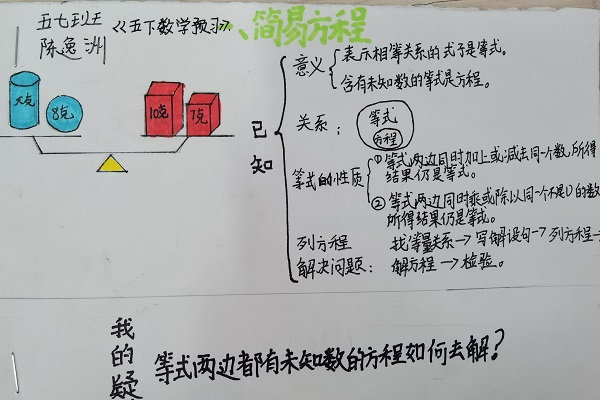 五七班
陈逸洲
《五下数学预习》
一、简易方程
x克
8克
10克
7克
已知
意义
表示相等关系的式子是等式。
含有未知数的等式是方程。
关系：
等式
方程
等式的性质
①等式两边同时加上或减去同一个数,所得
结果仍是等式。
②等式两边同时乘或除以同一个不是0的数
所得结果仍是等式。
列方程
解决问题：
找等量关系→写解设句→列方程→
解方程→检验。
我的疑
等式两边都有未知数的方程如何去解？